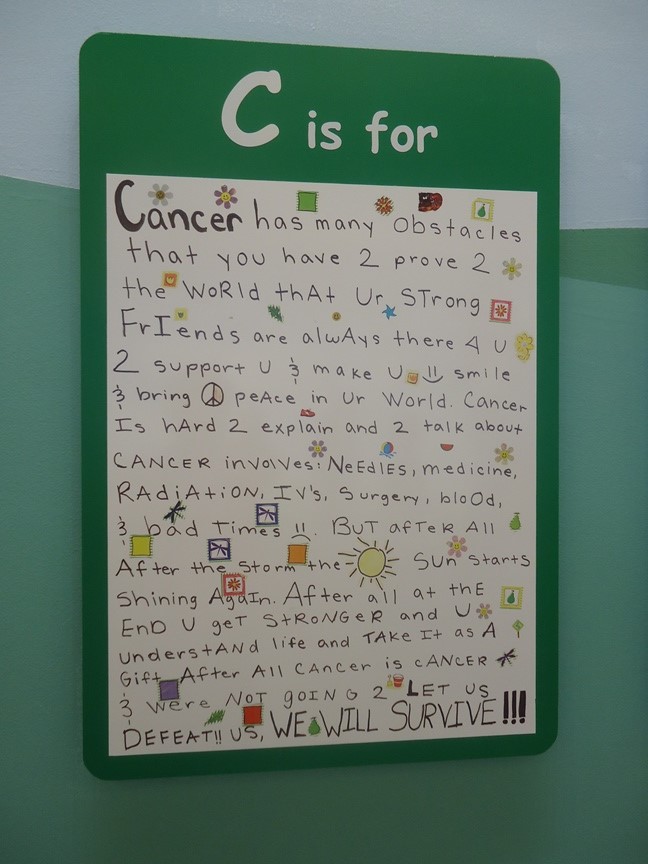 C is for
Cancer has many obstacles
that you have 2 prove 2
the WoRld thAt Ur STrong
FrIends are alwAys there 4 U
2 support U & make U smile
& bring peAce in Ur World. Cancer
Is hArd 2 explain and 2 talk about
CANCER involves: NeEdlEs, medicine,
RAdiAtiON, IV's, Surgery, bloOd,
& bad Times. BUT afTeR All
After the Storm the SUn Starts
Shining AgaIn. After all at thE
EnD U geT StRoNGeR and U
understANd life and TAKe It as A
Gift. After All CAncer is cANCER
& were NOT goING 2 LET US
DEFEAT!! US, WE WILL SURVIVE!!!